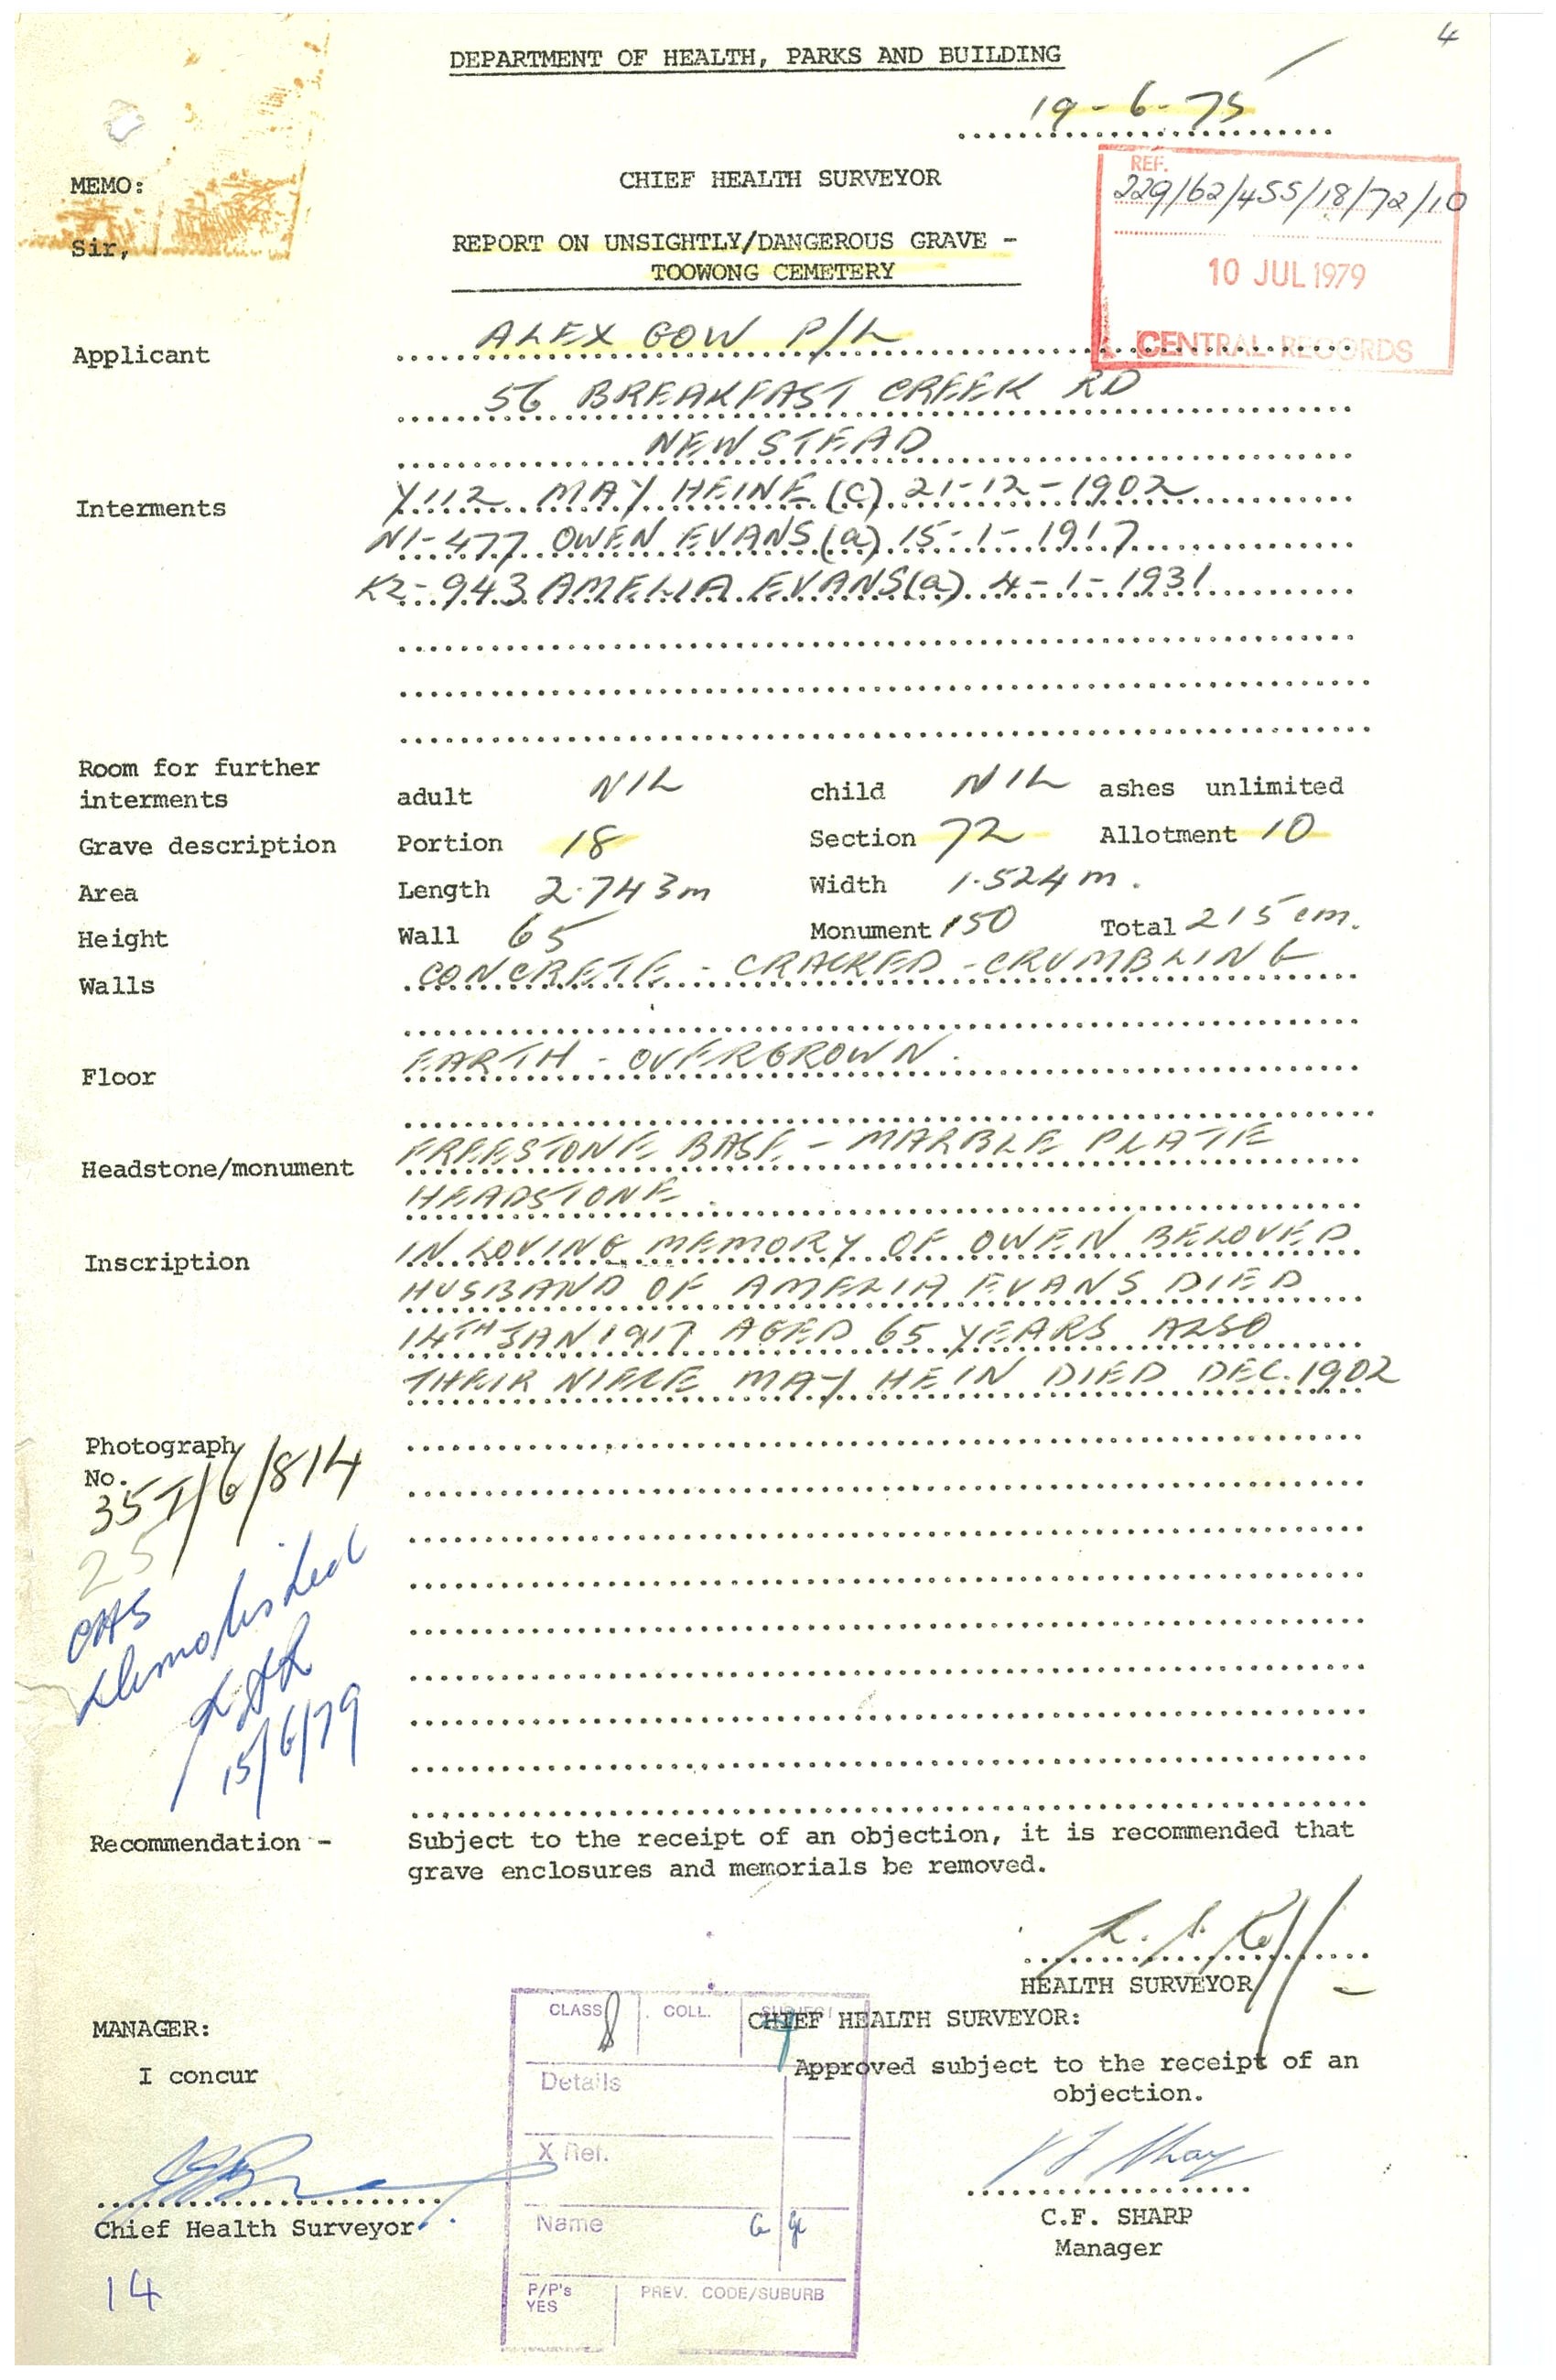 4
DEPARTMENT OF HEALTH, PARKS AND BUILDING
19-6-75
MEMO:
CHIEF HEALTH SURVEYOR
REF.
229/62/455/18/72/10
Sir,
REPORT ON UNSIGHTLY/DANGEROUS GRAVE -
TOOWONG CEMETERY
10 JUL 1979
CENTRAL RECORDS
Applicant ALEX GOW P/L
56 BREAKFAST CREEK RD
NEWSTEAD
Interments Y112 MAY HEINE (c) 21-12-1902
N1-477 OWEN EVANS (a) 15-1-1917
K2-943 AMELIA EVANS (a) 4-1-1931
Room for further
interments adult NIL child NIL ashes unlimited
Grave description Portion 18 Section 72 Allotment 10
Area Length 2.743m Width 1.524m.
Height Wall 65 Monument 150 Total 215 cm.
Walls CONCRETE - CRACKED - CRUMBLING
Floor EARTH - OVERGROWN.
Headstone/monument FREESTONE BASE - MARBLE PLATE
HEADSTONE.
Inscription IN LOVING MEMORY OF OWEN BELOVED
HUSBAND OF AMELIA EVANS DIED
14TH JAN 1917 AGED 65 YEARS ALSO
THEIR NIECE MAY HEIN DIED DEC. 1902
Photograph
No.
35T/6/814
25
CHS
Demolished
15/6/79
Recommendation - Subject to the receipt of an objection, it is recommended that
grave enclosures and memorials be removed.
HEALTH SURVEYOR
MANAGER:
CHIEF HEALTH SURVEYOR:
I concur
Approved subject to the receipt of an
objection.
Chief Health Surveyor
C.F. SHARP
Manager
14
CLASS COLL. SUBJECT
Details
X Ref.
Name
P/P's
YES
PREV. CODE/SUBURB